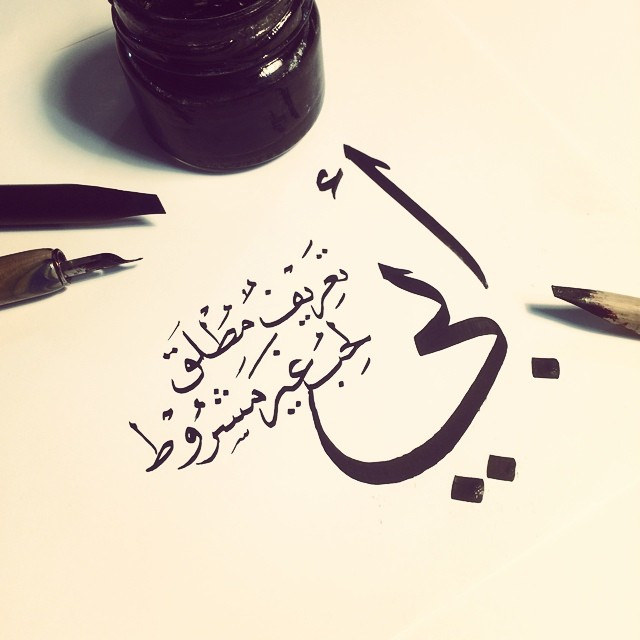 أبي
تعريف مُطْلَق
لحُب غير مَشرُوْط